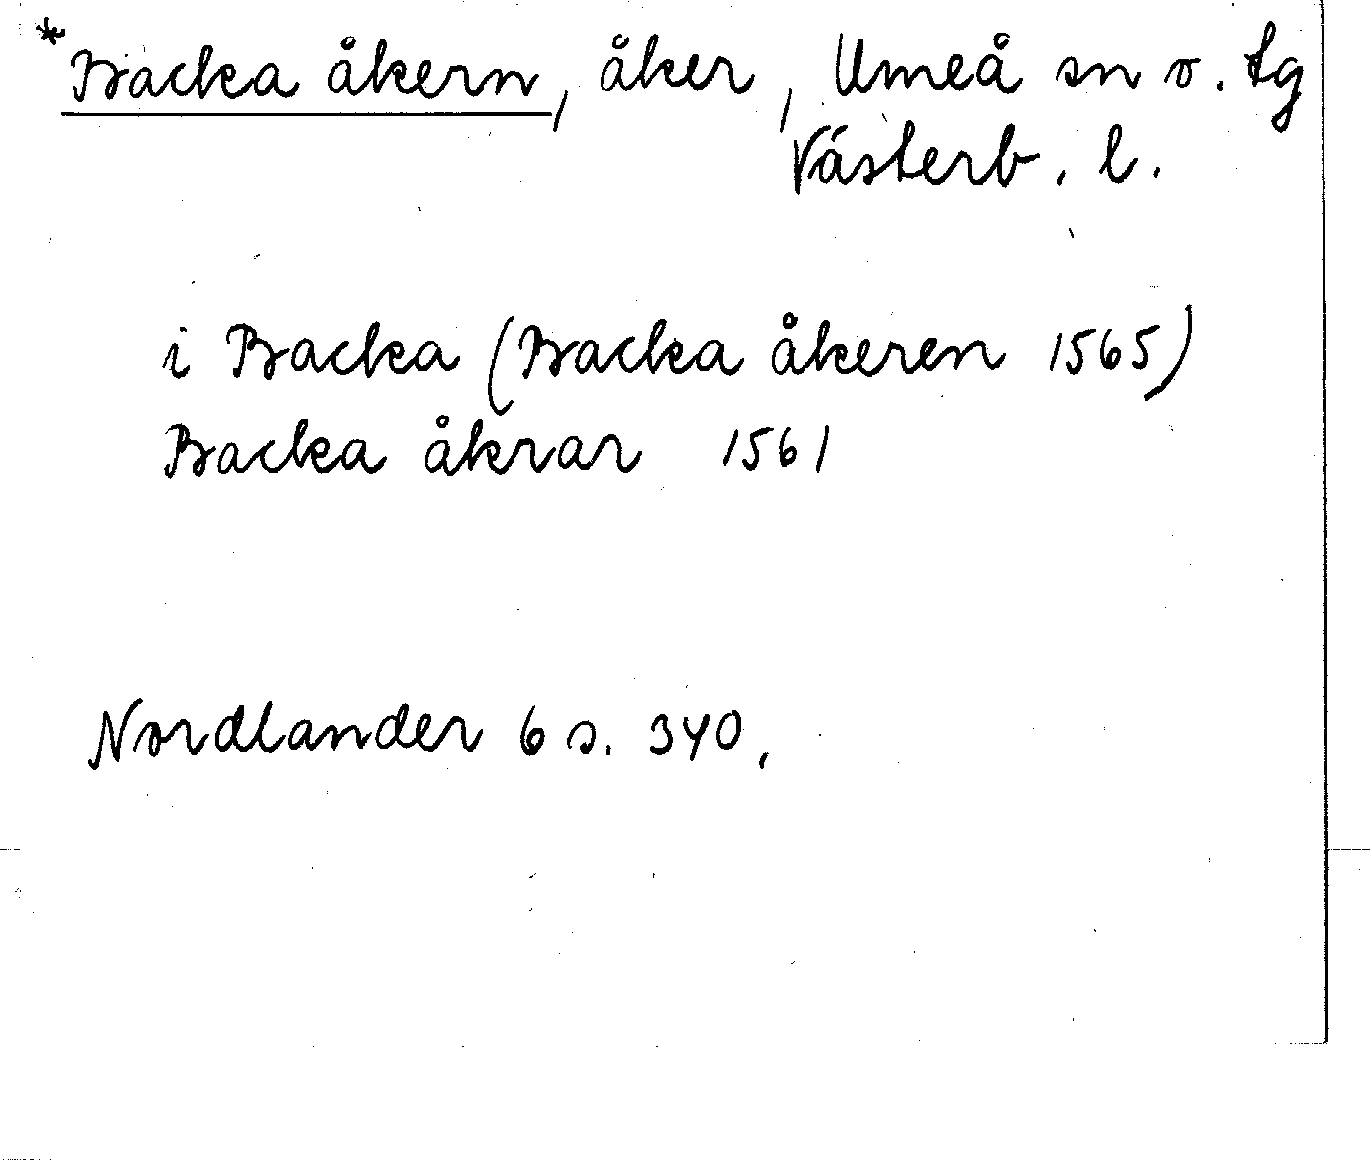 *Backa åkern, åker, Umeå sn o. tg
Västerb. l.
i Backa (Backa åkeren 1565)
Backa åkrar 1561
Nordlander 6 s. 340.